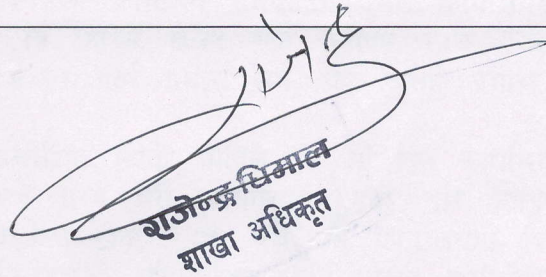 राजेन्द्र धिमाल
शाखा अधिकृत